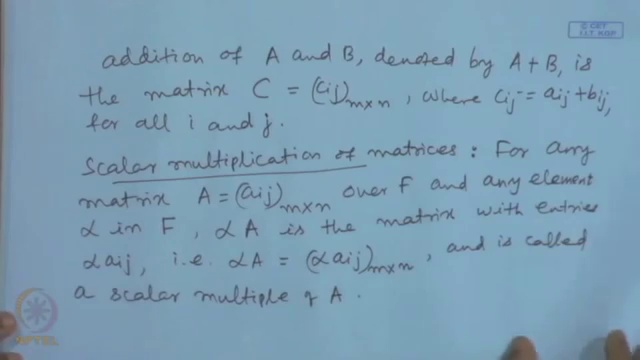 © CET
I.I.T. KGP
addition of A and B, denoted by A+B, is
the matrix C = (cij)m×n, where cij = aij + bij,
for all i and j.
Scalar multiplication of matrices: For any
matrix A = (aij)m×n over F and any element
α in F, αA is the matrix with entries
αaij, i.e. αA = (αaij)m×n, and is called
a scalar multiple of A.
NPTEL